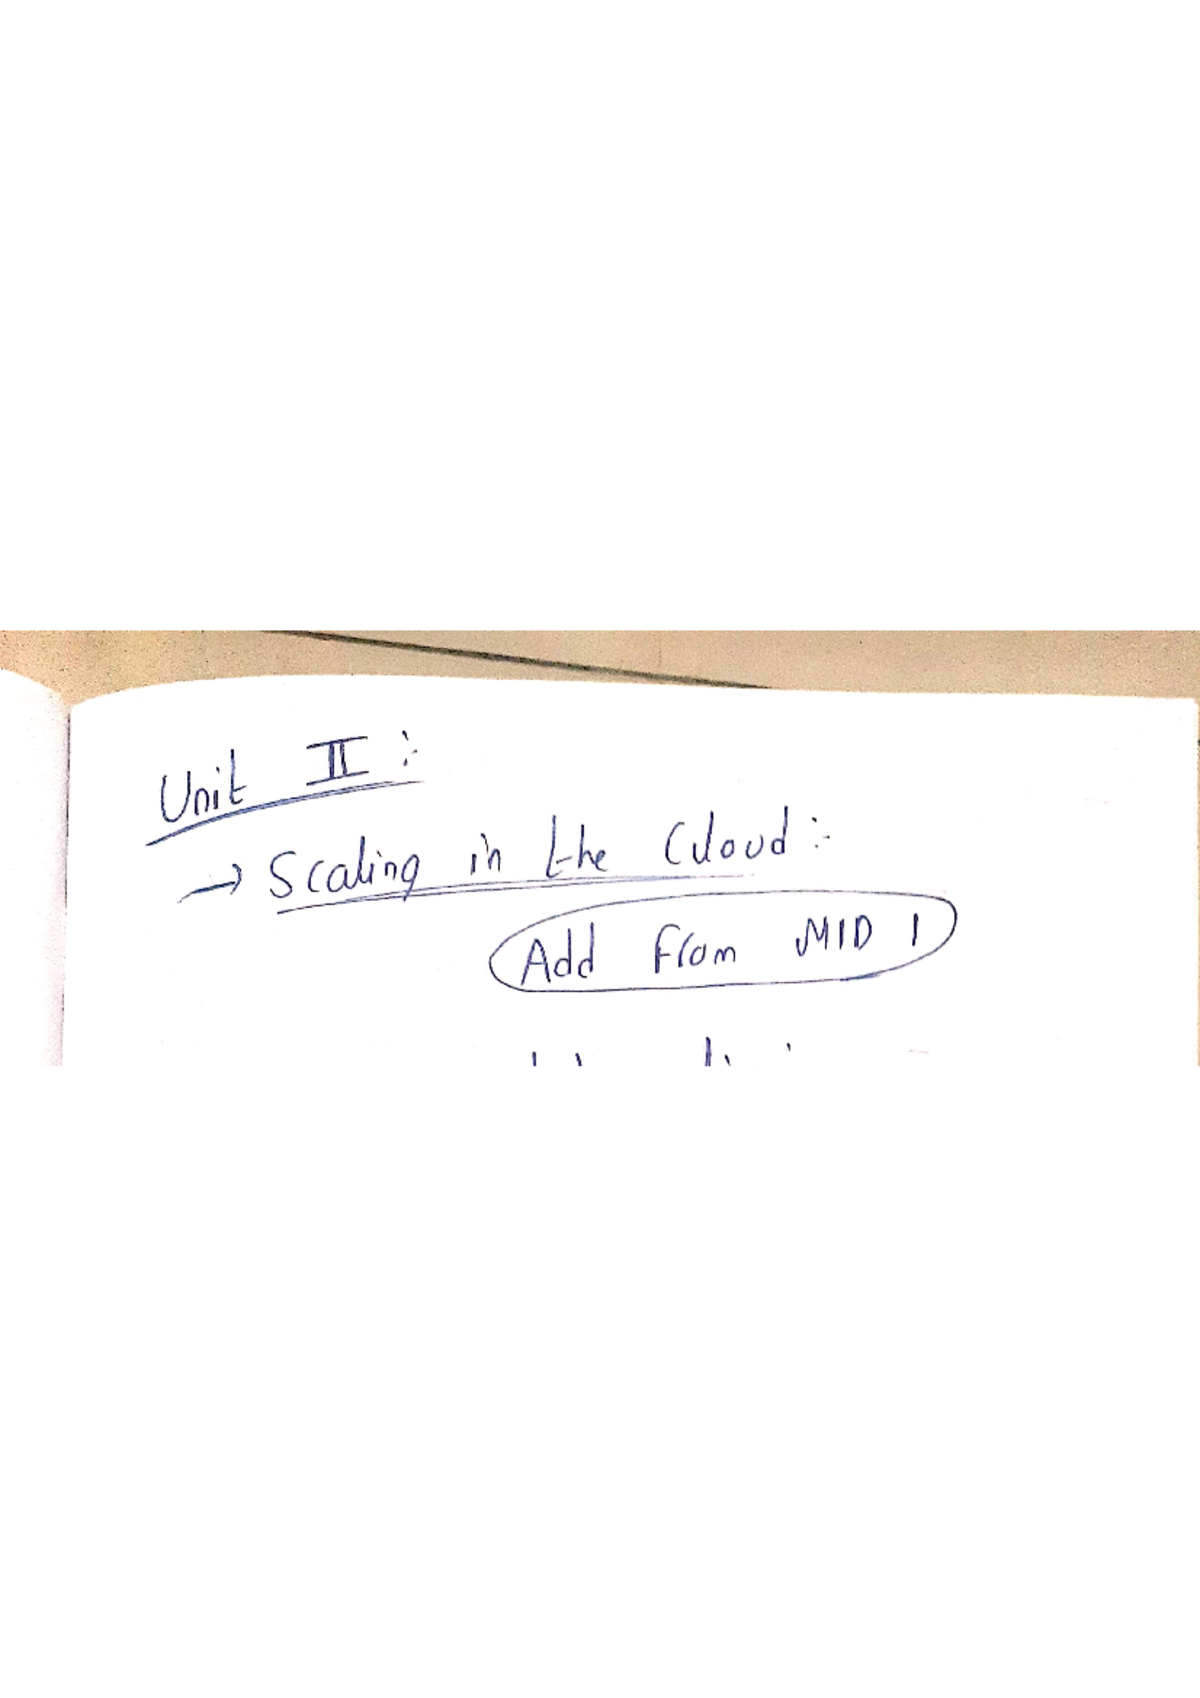 Unit II :-
→ Scaling in the Cloud :-
Add From MID 1